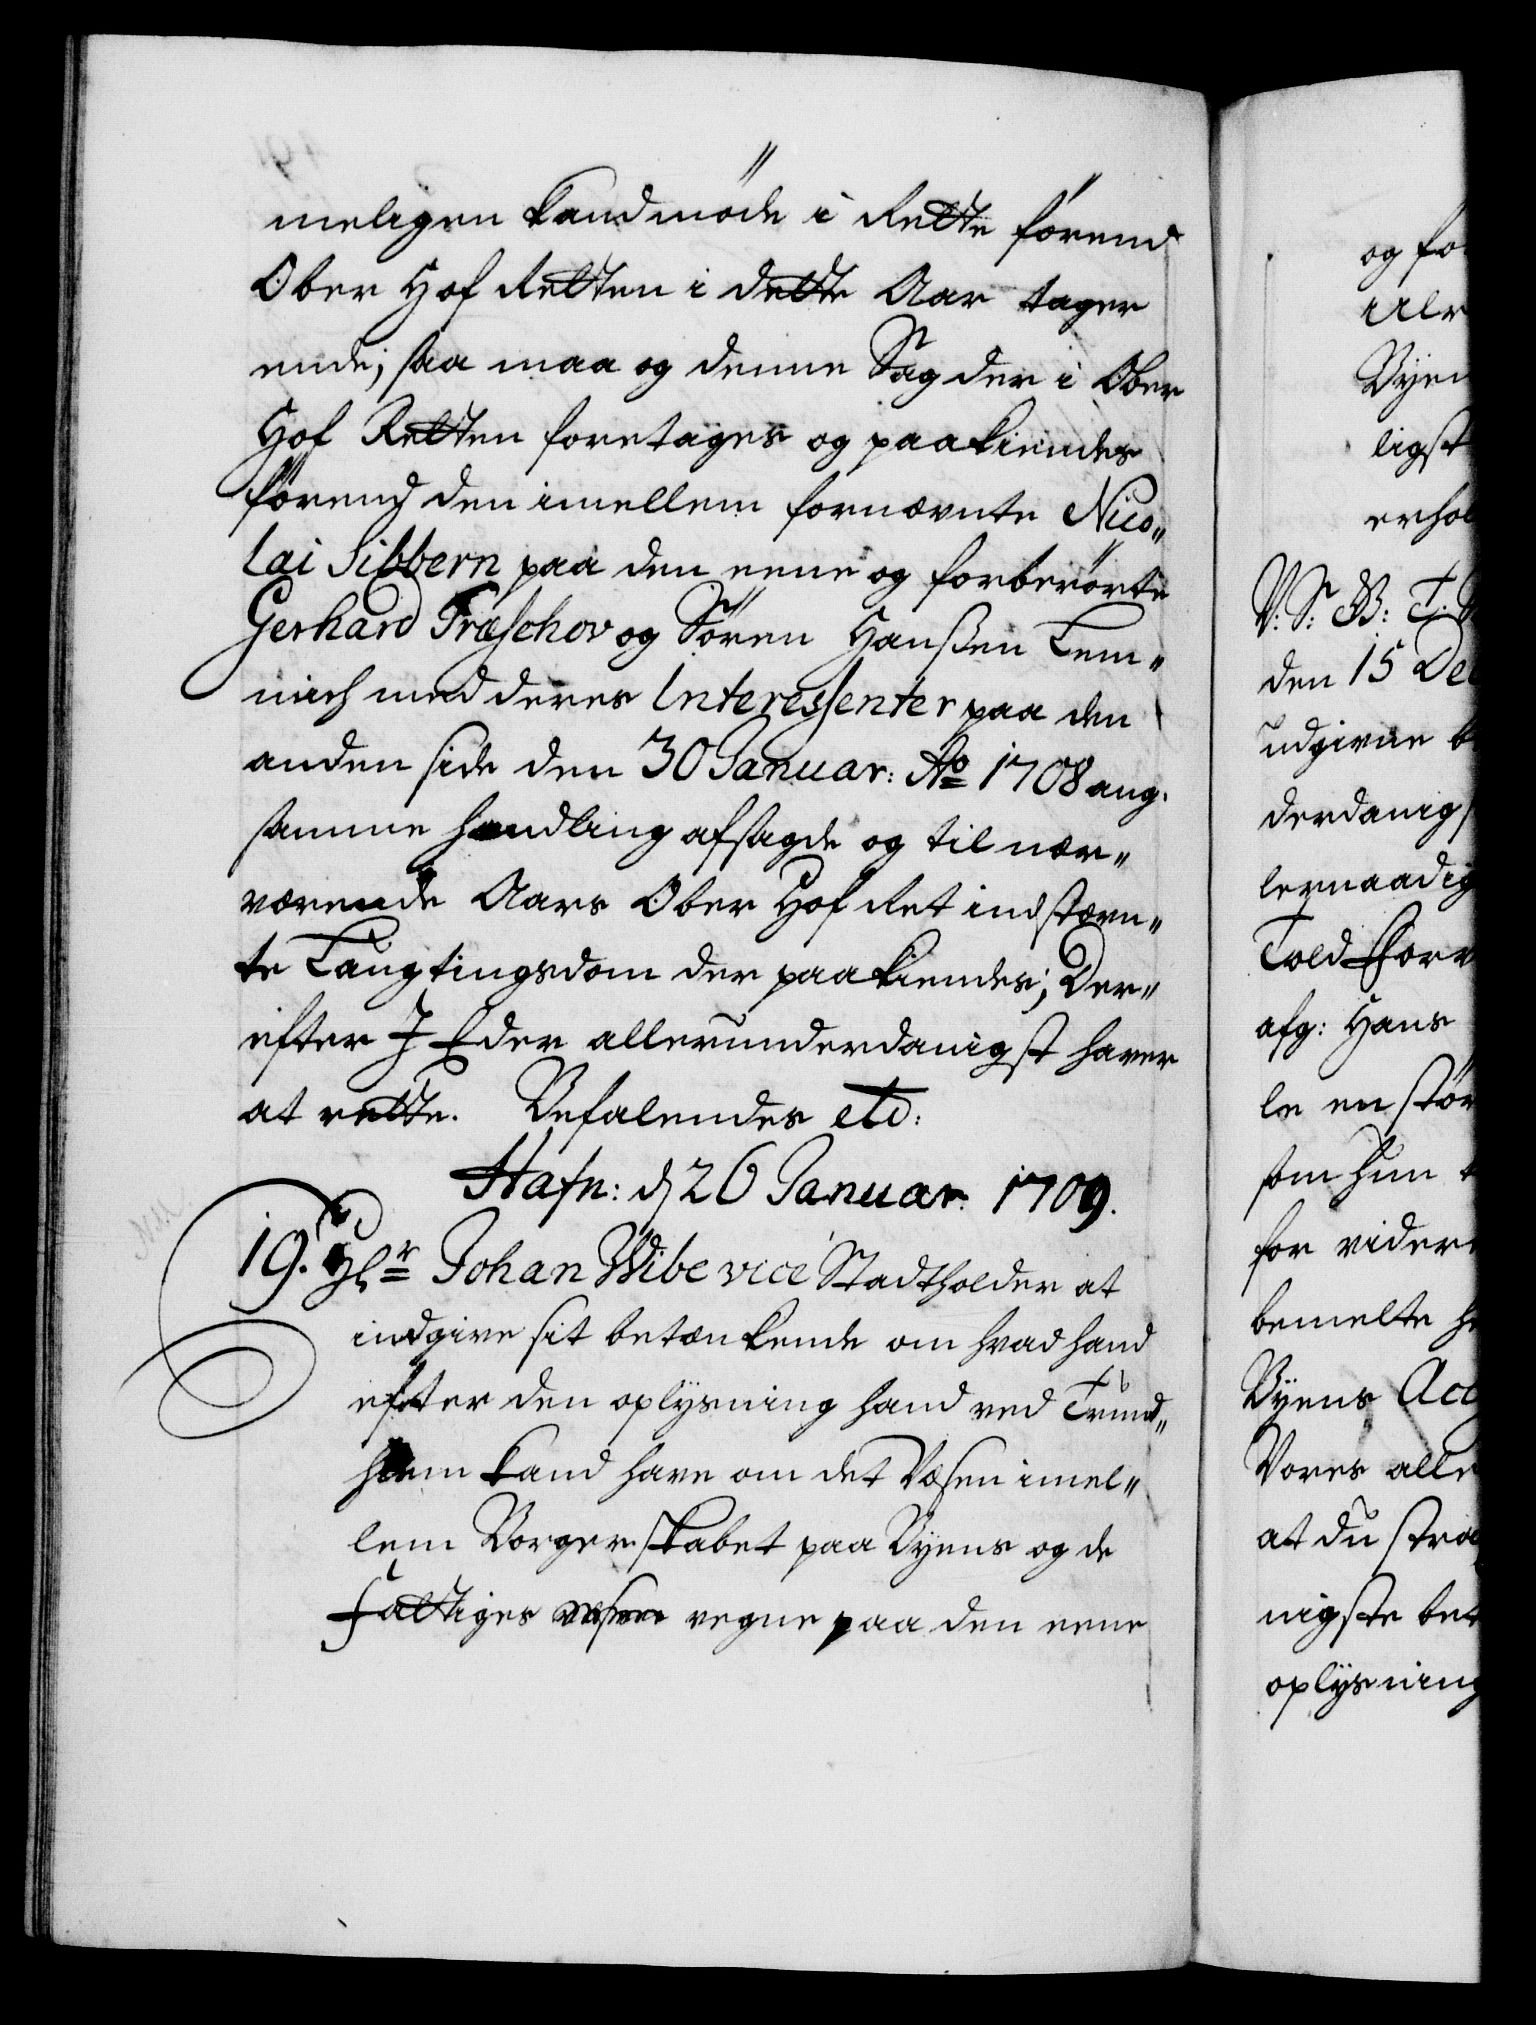 meligen kand møde i Rette førend
Ober Hof Retten i dette Aar tager
ende; saa maa og denne Sag der i Ober
Hof Retten foretages og paakiendes
førend den imellem fornævnte Nico„
lai Sibbern paa den eene og forberørte
Gerhard Træschov og Søren Hanßen Lem„
nich med deres Interessenter paa den
anden side den 30 Januar: Ao 1708 ang.
samme handling afsagde og til nær„
værende Aars Ober Hof Ret indstævn„
te Laugtingsdom der paakiendes; Der„
efter I Eder allerunderdanigst haver
at rette. Befalendes etc:
Hafn: d 26 Januar. 1709.
19. Hr Johan Wibe vice Stadtholder at
indgive sit betænkende om hvad hand
efter den oplysning hand ved Trund„
hiem kand have om det Væsen imel„
lem Borgerskabet paa Byens og de
Fattiges vegne paa den eene
og fo
Byen
ligst
erhol
V: S: B: T:
den 15 De
udgivne b
derdanigs
lernaadig
Told Forv
afg: Hans
le en stør
som hun
for videre
bemelte h
Byens Acc
Vores alle
at du stra
nigste bet
oplysning